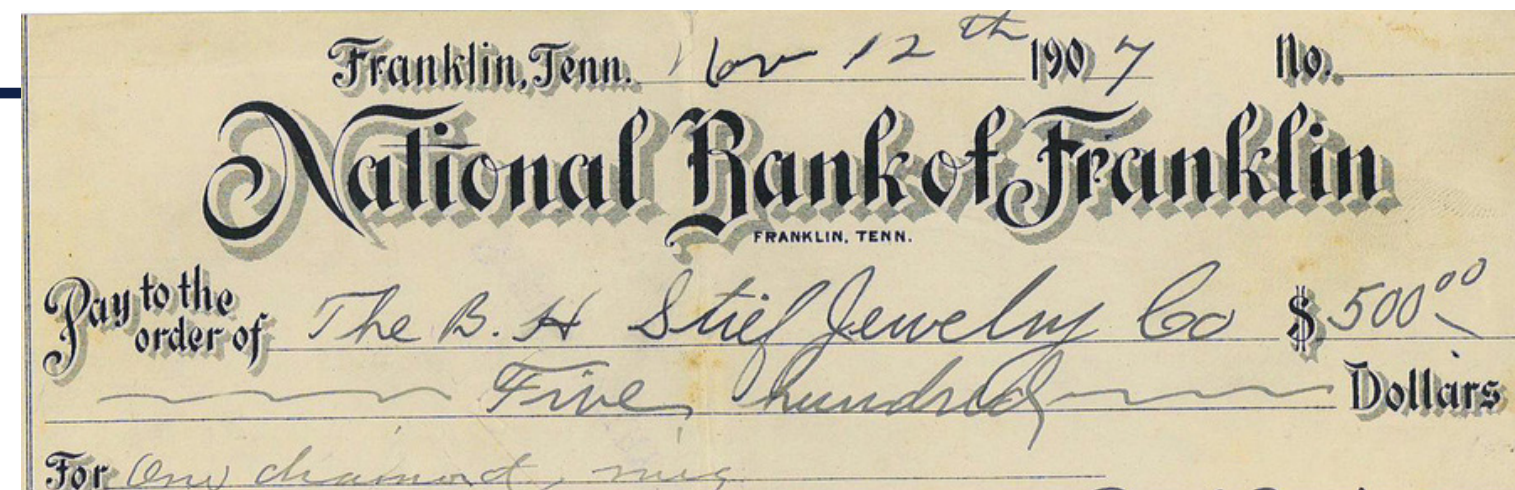 Franklin, Tenn. Nov 12th 1907 No.
National Bank of Franklin
FRANKLIN, TENN.
Pay to the order of The B. H Stief Jewelry Co $ 500 00
Five hundred Dollars
For One diamond ring